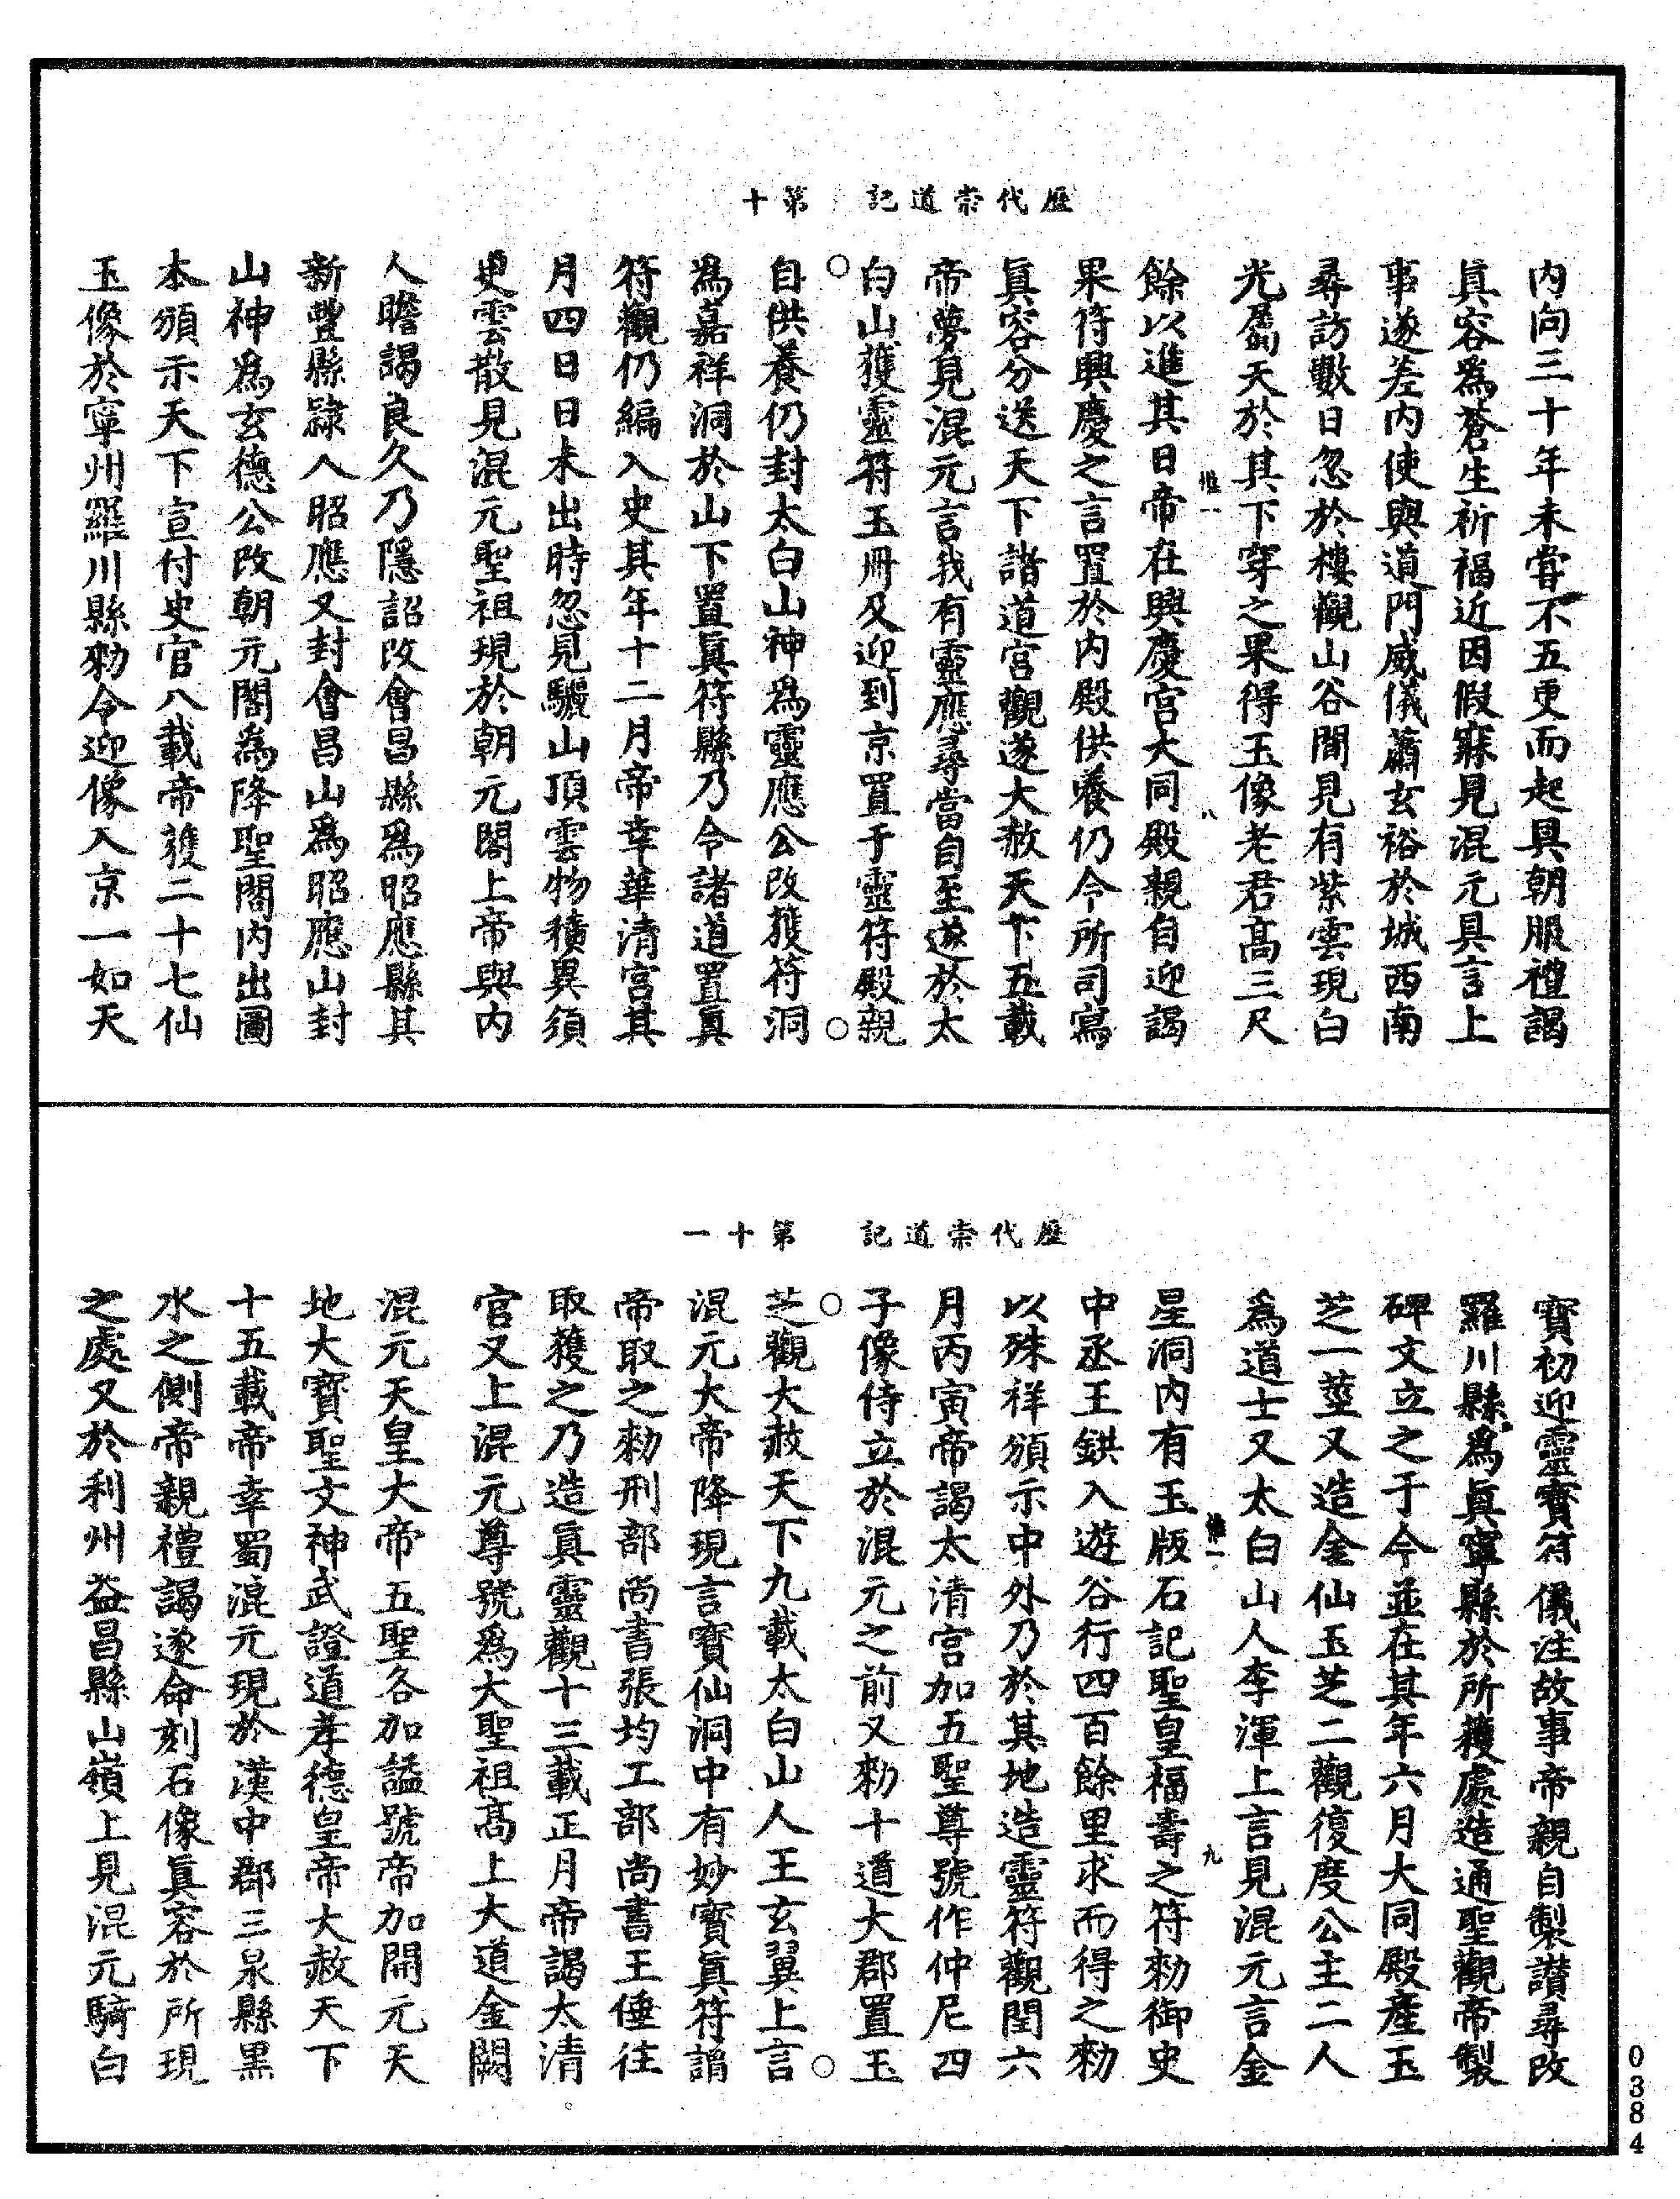 歷代崇道記　第十
內向三十年未嘗不五更而起具朝服禮謁
眞容爲蒼生祈福近因假寐見混元具言上
事遂差內使與道門威儀蕭玄裕於城西南
尋訪數日忽於樓觀山谷間見有紫雲現白
光屬天於其下穿之果得玉像老君高三尺
餘以進其日帝在興慶宮大同殿親自迎謁
果符興慶之言置於內殿供養仍令所司寫
眞容分送天下諸道宮觀遂大赦天下五載
帝夢見混元言我有靈應尋當自至遂於太
白山獲靈符玉冊及迎到京置于靈符殿親
自供養仍封太白山神爲靈應公改獲符洞
爲嘉祥洞於山下置眞符縣乃令諸道置眞
符觀仍編入史其年十二月帝幸華清宮其
月四日日未出時忽見驪山頂雲物積異須
臾雲散見混元聖祖現於朝元閣上帝與內
人瞻謁良久乃隱詔改會昌縣爲昭應縣其
新豐縣隸入昭應又封會昌山爲昭應山封
山神爲玄德公改朝元閣爲降聖閣內出圖
本頒示天下宣付史官八載帝獲二十七仙
玉像於寧州羅川縣勑令迎像入京一如天
八
歷代崇道記　第十一
寶初迎靈寶符儀注故事帝親自製讃尋改
羅川縣爲眞寧縣於所獲處造通聖觀帝製
碑文立之于今並在其年六月大同殿產玉
芝一莖又造金仙玉芝二觀復度公主二人
爲道士又太白山人李渾上言見混元言金
星洞內有玉版石記聖皇福壽之符勑御史
中丞王鉷入遊谷行四百餘里求而得之勑
以殊祥頒示中外乃於其地造靈符觀閏六
月丙寅帝謁太清宮加五聖尊號作仲尼四
子像侍立於混元之前又勑十道大郡置玉
芝觀大赦天下九載太白山人王玄翼上言
混元大帝降現言寶仙洞中有妙寶眞符謂
帝取之勑刑部尚書張均工部尚書王倕往
取獲之乃造眞靈觀十三載正月帝謁太清
宮又上混元尊號爲大聖祖高上大道金闕
混元天皇大帝五聖各加謚號帝加開元天
地大寶聖文神武證道孝德皇帝大赦天下
十五載帝幸蜀混元現於漢中郡三泉縣黑
水之側帝親禮謁遂命刻石像眞容於所現
之處又於利州益昌縣山嶺上見混元騎白
九
0384